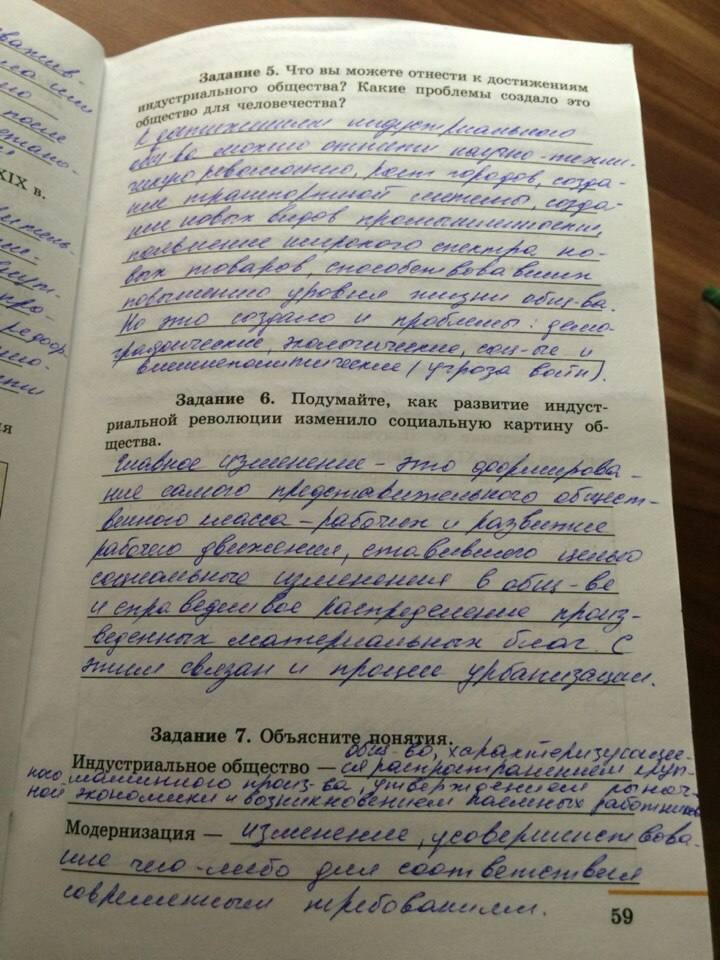 важив-
после
XIX в.
Задание 5. Что вы можете отнести к достижениям
индустриального общества? Какие проблемы создало это
общество для человечества?
К достижениям индустриального
общ-ва можно отнести научно-техни-
ческую революцию, рост городов, созда-
ние транспортной системы, созда-
ние новых видов промышленности,
появление широкого спектра но-
вых товаров, способствовавших
повышению уровня жизни общ-ва.
Но это создало и проблемы: демо-
графические, экологические, соц-ые и
внешнеполитические (угроза войн).
Задание 6. Подумайте, как развитие индуст-
риальной революции изменило социальную картину об-
щества.
Главное изменение – это формирова-
ние самого представительного общест-
венного класса – рабочих и развитие
рабочего движения, ставившего целью
социальные изменения в общ-ве
и справедливое распределение произ-
веденных материальных благ. С
этим связан и процесс урбанизации.
Задание 7. Объясните понятия.
общ-во, характеризующее-
Индустриальное общество — ся распространением круп-
ного машинного произ-ва, утверждением рыноч-
ной экономики и возникновением наемных работников
Модернизация — изменение, усовершенствова-
ние чего-либо для соответствия
современным требованиям.
59